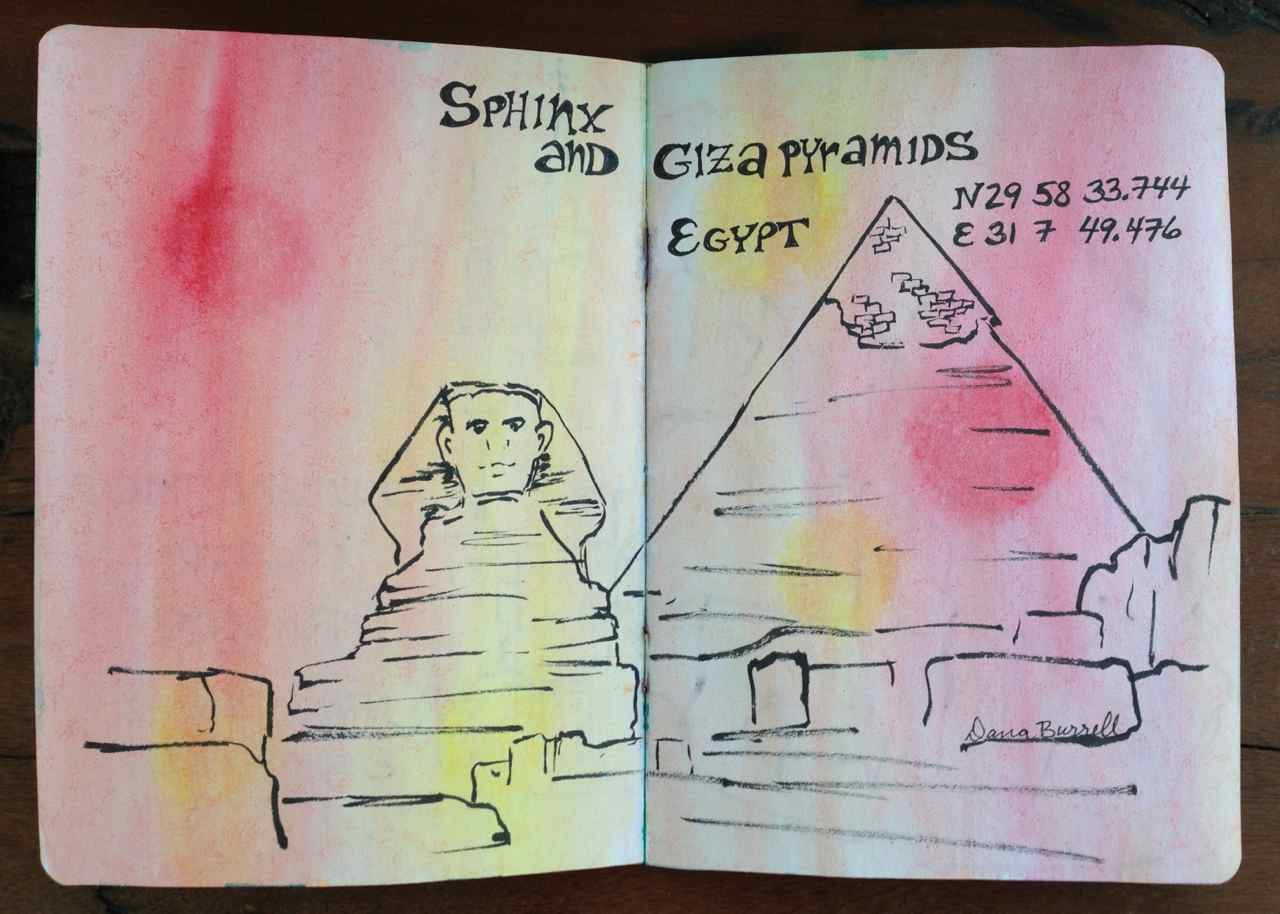 SPHinx
anD
GIZa pyramIDS
EGYPT
N29 58 33.744
E 31 7 49.476
Dana Burrell